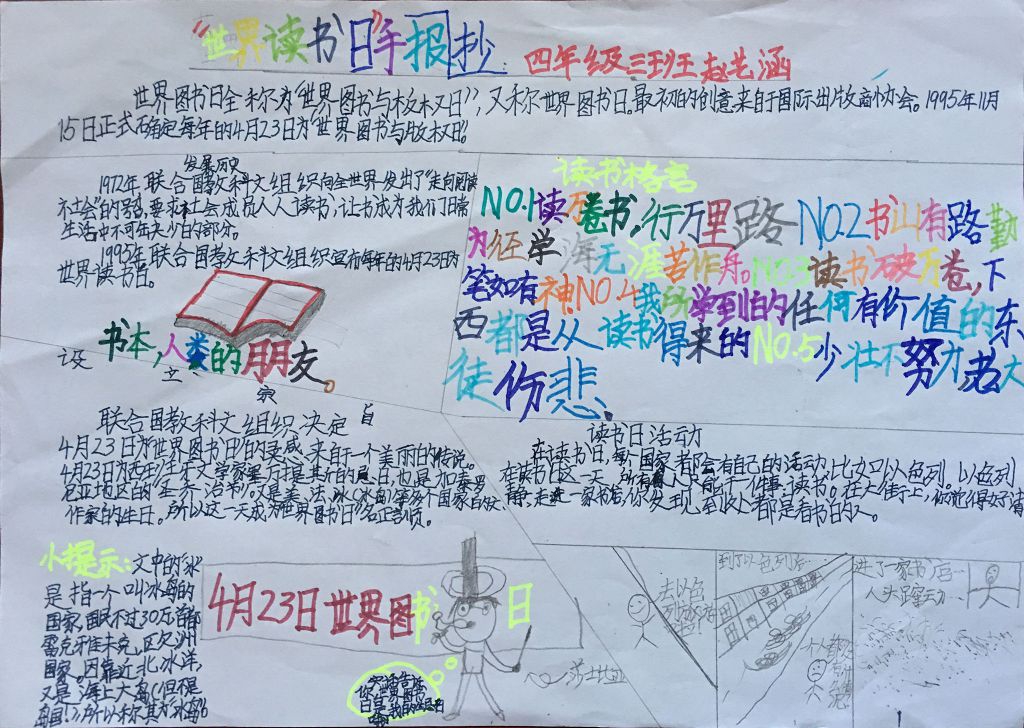 “世界读书日”手报抄: 四年级三班王赵艺涵
世界图书日全称为“世界图书与板权日”,又称世界图书日。最初的创意来自于国际出版商协会。1995年11月
15日正式确定每年的4月23日为“世界图书与版权日”。
发展历史
1972年,联合国教科文组织向全世界发出了“走向阅读
社会”的号召,要求社会成员人人读书,让书成为我们日常
生活中不可缺少的部分。
1995年,联合国教科文组织宣布每年的4月23日为
世界读书日。
书本,人类的朋友。
设 立 家 自
读书格言
NO.1读万卷书,行万里路 NO.2书山有路勤
为径 学海无涯苦作舟。NO.3读书破万卷,下
笔如有神NO.4我所学到的任何有价值的东
西都是从读书得来的NO.5少壮不努力,老大
徒伤悲.
联合国教科文组织决定
4月23日为“世界图书日”的灵感,来自于一个美丽的传说。
作家的生日。所以这一天成为“世界图书日”名正言顺。
读书日活动
在读书日,每个国家都会有自己的活动,比如以色列。以色列
在读书日这一天,所有人只能干一件事:读书。在大街上,你觉得好清
静,走进一家书店,你发现,到处都是看书的人。
小提示:文中的“冰”
是指一个叫冰岛的
国家,国民不过30万首都
雷克雅未克,区欠洲
国家。因靠近北冰洋,
又是海上大岛
岛国!),所以称其为“冰岛”
4月23日世界图书日
去以色
列
到了以色列后…
进了一家书店…
人头踩动…